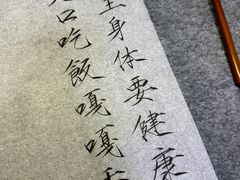 身体要健康
口吃飯嘎嘎